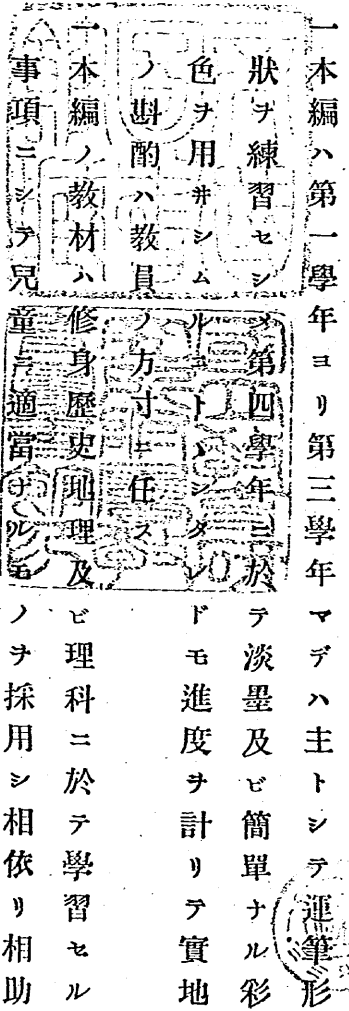 一本編ハ第一學年ヨリ第三學年マデハ主トシテ運筆形
狀ヲ練習セシメ第四學年ニ於テ淡墨及ビ簡單ナル彩
色ヲ用井シムルコトヽシタレドモ進度ヲ計リテ實地
ノ斟酌ハ教員ノ方寸ニ任ス
一本編ノ教材ハ修身歷史地理及ビ理科ニ於テ學習セル
事項ニシテ兒童ニ適當ナルモノヲ採用シ相依リ相助